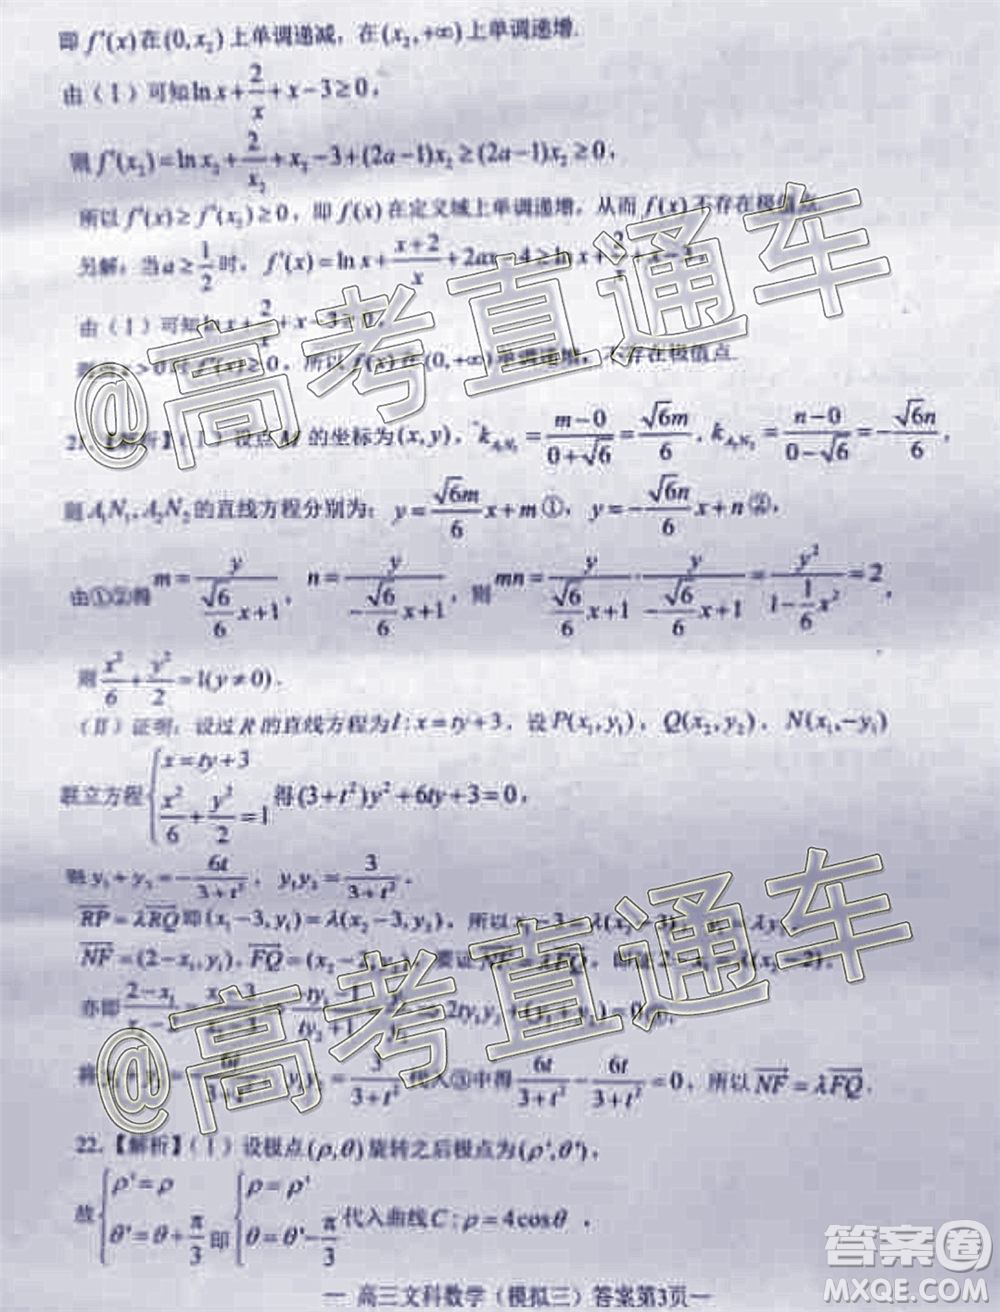 即 f'(x) 在 (0, x₂) 上单调递减，在 (x₂, +∞) 上单调递增.
由（Ⅰ）可知 ln x + 2/x + x − 3 ≥ 0，
则 f'(x₂) = ln x₂ + 2/x₂ + x₂ − 3 + (2a−1)x₂ ≥ (2a−1)x₂ ≥ 0，
所以 f'(x) ≥ f'(x₂) ≥ 0，即 f(x) 在定义域上单调递增，从而 f(x) 不存在极值点.
另解：当 a ≥ 1/2 时，f'(x) = ln x + (x+2)/x + 2ax − 4 ≥ ln x + 2/x + x − 3
由（Ⅰ）可知 ln x + 2/x + x − 3 ≥ 0，
x > 0 f'(x) ≥ 0，所以 f(x) 在 (0, +∞) 单调递增，不存在极值点.
21.【解析】（Ⅰ）设点 M 的坐标为 (x, y)，k_{A₁N₁} = (m−0)/(0+√6) = √6m/6，k_{A₂N₂} = (n−0)/(0−√6) = −√6n/6，
则 A₁N₁, A₂N₂ 的直线方程分别为：y = (√6m/6)x + m ①，y = −(√6n/6)x + n ②，
由①②得 m = y/((√6/6)x+1)，n = y/(−(√6/6)x+1)，则 mn = y/((√6/6)x+1) · y/(−(√6/6)x+1) = y²/(1−(1/6)x²) = 2，
则 x²/6 + y²/2 = 1(y ≠ 0).
（Ⅱ）证明：设过 R 的直线方程为 l : x = ty + 3，设 P(x₁, y₁)，Q(x₂, y₂)，N(x₁, −y₁)
联立方程 { x = ty + 3, x²/6 + y²/2 = 1 得 (3+t²)y² + 6ty + 3 = 0，
y₁ + y₂ = −6t/(3+t²)，y₁y₂ = 3/(3+t²).
RP = λRQ 即 (x₁−3, y₁) = λ(x₂−3, y₂)，所以 x₁−3 = λ(x₂−3)，y₁ = λy₂
NF = (2−x₁, y₁)，FQ = (x₂−2, y₂)，要证 NF = λFQ，即证 2−x₁ = λ(x₂−2)，
亦即 (2−x₁)/(x₂−2) = (x₁−3)/(x₂−3) −ty₁−1 / ty₂+1 = y₁/y₂ 2ty₁y₂ + (y₁+y₂) = 0
将 y₁ + y₂ = −6t/(3+t²)，y₁y₂ = 3/(3+t²) 代入③中得 6t/(3+t²) − 6t/(3+t²) = 0，所以 NF = λFQ.
22.【解析】（Ⅰ）设极点 (ρ, θ) 旋转之后极点为 (ρ', θ')，
故 { ρ' = ρ, θ' = θ + π/3 即 { ρ = ρ', θ = θ' − π/3 代入曲线 C : ρ = 4cosθ，
— 高三文科数学（模拟三）答案第3页 —
@高考直通车
@高考直通车
答案圈
MXQE.COM